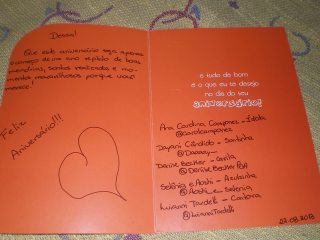 Dessa!
Que este aniversário seja apenas
o começo de um ano repleto de boas
memórias, sonhos realizados e mo-
mentos maravilhosos porque você
merece!
Feliz
Aniversário!!!
e tudo de bom
é o que eu te desejo
no dia do teu
aniversário!
Ana Carolina Camponez - Ídola
@carolcamponez
Dayani Cândido - Santinha
Denise Becker - Camila
Selênia e Aoshi - Azulzinha
@Aoshi_e_Selenia
Luciana Tardelli - Cantora
@LucianaTardelli
22.08.2013